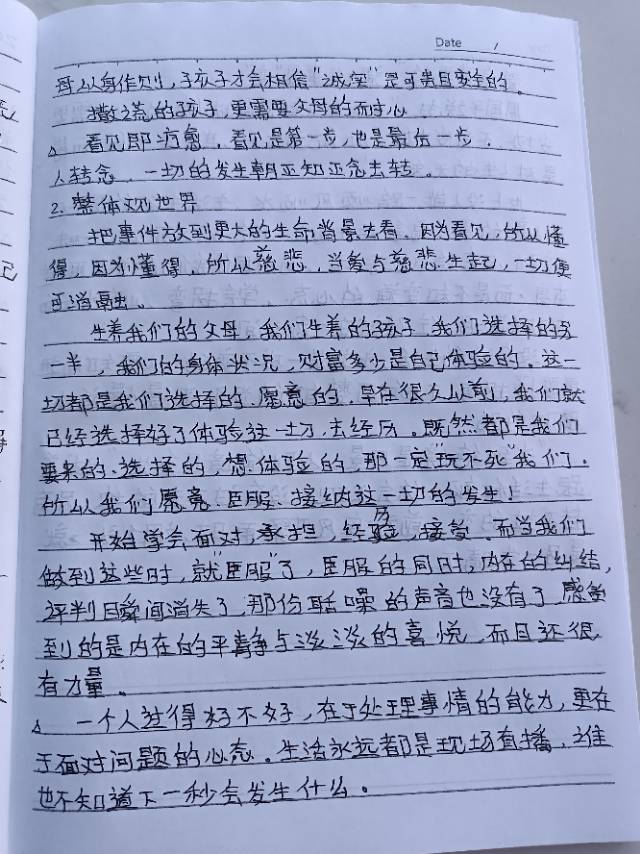 Date /
母以身作则，子孩子才会相信“诚实”是可贵且安全的。
撒谎的孩子，更需要父母的耐心。
△ 看见即疗愈，看见是第一步，也是最后一步。
人转念，一切的发生朝正知正念去转。
2. 整体观世界
把事件放到更大的生命背景去看，因为看见，所以懂
得，因为懂得，所以慈悲，当爱与慈悲生起，一切便
可消融。
生养我们的父母，我们生养的孩子，我们选择的另
一半，我们的身体状况，财富多少是自己体验的。这一
切都是我们选择的、愿意的，早在很久以前，我们就
已经选择好了体验这一切，去经历。既然都是我们
要来的、选择的，想体验的，那一定“玩不死”我们。
所以我们愿意、臣服、接纳这一切的发生！
开始学会面对，承担，经历，接受。而当我们
做到这些时，就“臣服”了，臣服的同时，内在的纠结，
评判瞬间消失了，那份聒噪的声音也没有了，感觉
到的是内在的平静与淡淡的喜悦，而且还很
有力量。
△ 一个人过得好不好，在于处理事情的能力，更在
于面对问题的心态。生活永远都是现场直播，谁
也不知道下一秒会发生什么。